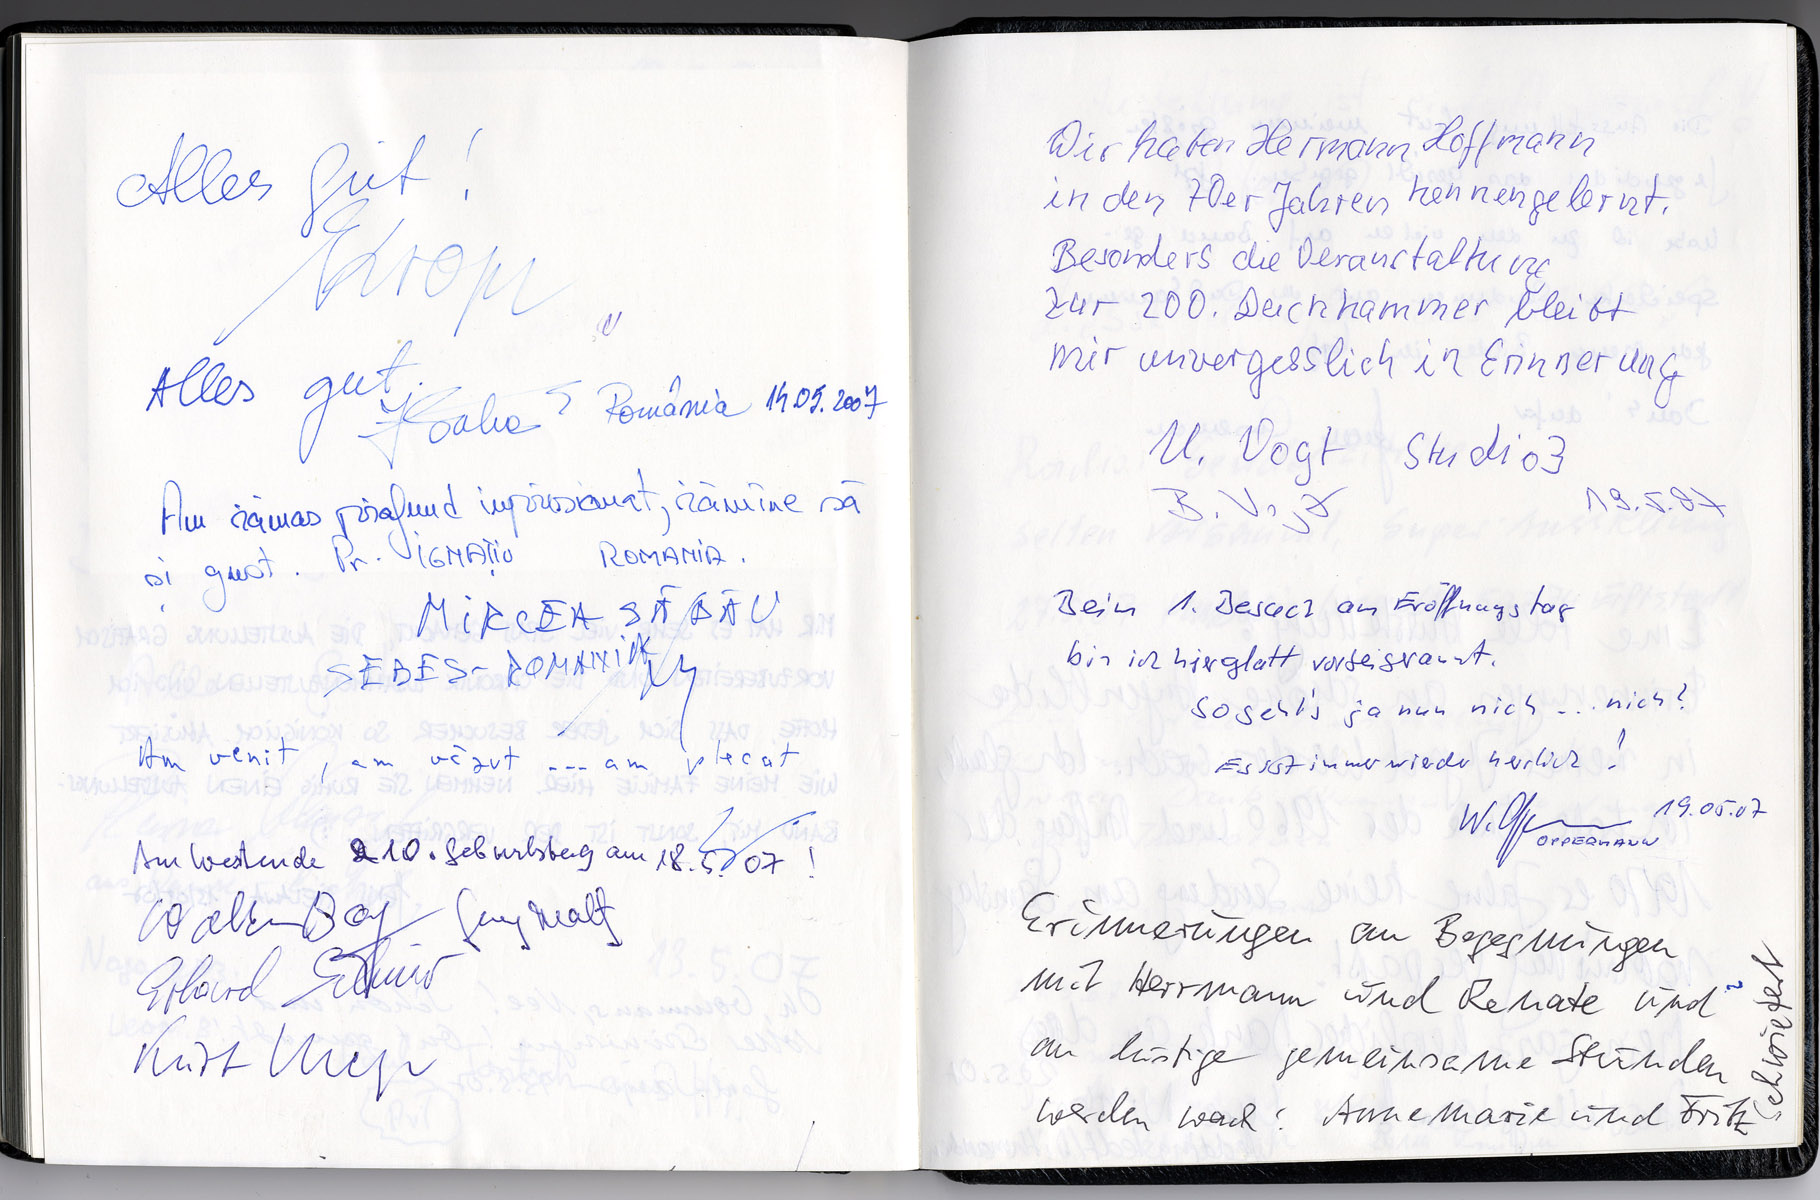 Alles gut!
Alles gut,
România 14.05.2007
Am rămas profund impresionat, rămîne să
și gust. Pr. IGNAȚIU ROMANIA.
MIRCEA SĂBĂU
SEBEȘ-ROMANIA
Am venit, am văzut ... am plecat
Am Westende 210. Geburtstag am 18.5.07!
Erhard
Kurt
Wir haben Hermann Hoffmann
in den 70er Jahren kennengelernt.
Besonders die Veranstaltung
zur 200. Deichkammer bleibt
mir unvergesslich in Erinnerung
U. Vogt Studio3
B. Vogt 19.5.07
Beim 1. Besuch am Eröffnungstag
bin ich hier glatt vorbeigerannt.
So geht's ja nun nich ... nich?
Es ist immer wieder herrlich!
OPPERMANN 19.05.07
Erinnerungen an Begegnungen
mit Herrmann und Renate und
an lustige gemeinsame Stunden
werden wach! Annemarie und Fritz
Schwiefert